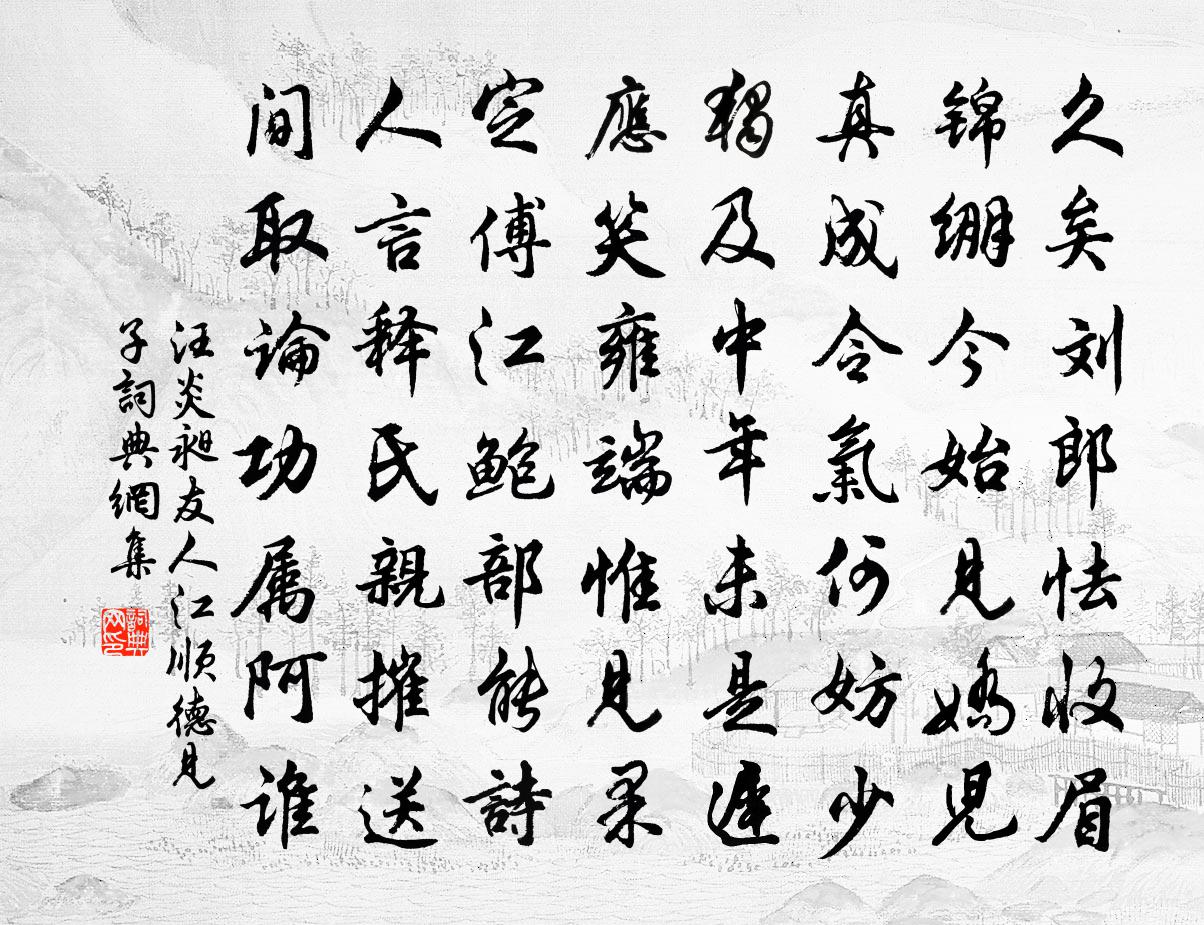 久矣刘郎怯收眉
锦绷今始見嬌児
真成令氣何妨少
獨及中年未是遲
應笑雍端惟見果
定傅江鮑部能詩
人言释民親擁送
間取論功属阿谁
汪炎昶友人江顺德見
子詞典網集
詞典网印